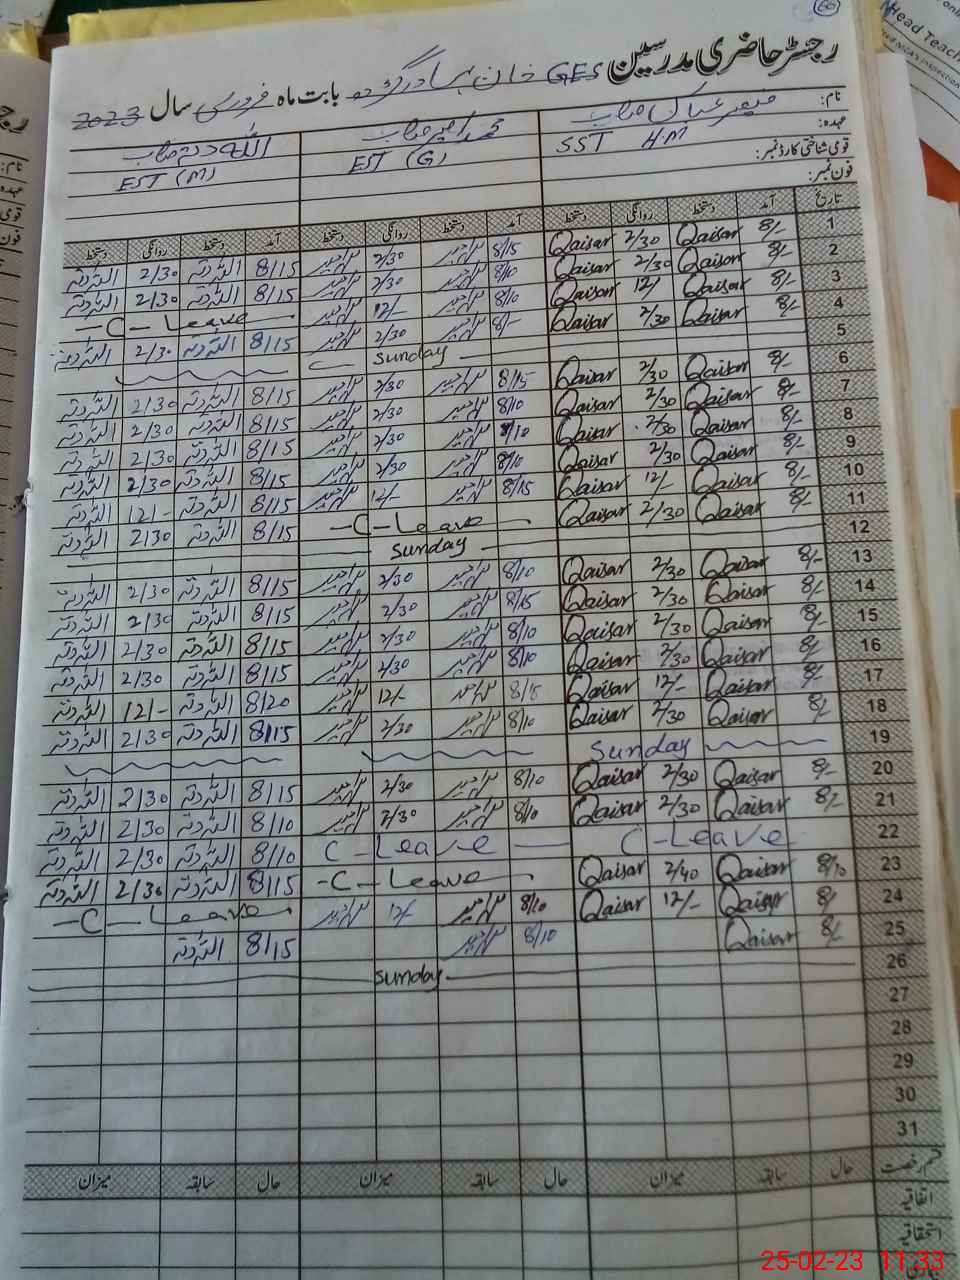 Head Teach
رجسٹر حاضری مدرسین GES خان بہادر گڑھ بابت ماہ فروری سال 2023
نام: قیصر عباس صاحب محمد امیر صاحب اللہ دتہ صاحب
عہدہ: SST HM EST (G) EST (M)
قومی شناختی کارڈ نمبر:
فون نمبر:
تاریخ آمد دستخط روانگی دستخط آمد دستخط روانگی دستخط آمد دستخط روانگی دستخط
1 8/- Qaisar 2/30 Qaisar 8/15 2/30 8/15 اللہ دتہ 2/30 اللہ دتہ
2 8/- Qaisar 2/30 Qaisar 8/10 2/30 8/15 اللہ دتہ 2/30 اللہ دتہ
3 8/- Qaisar 12/ Qaisar 8/10 12/- C-Leave
4 8/- Qaisar 2/30 Qaisar 8/- 2/30 8/15 اللہ دتہ 2/30 اللہ دتہ
5 Sunday
6 8/- Qaisar 2/30 Qaisar 8/15 2/30 8/15 اللہ دتہ 2/30 اللہ دتہ
7 8/- Qaisar 2/30 Qaisar 8/10 2/30 8/15 اللہ دتہ 2/30 اللہ دتہ
8 8/- Qaisar 2/30 Qaisar 8/10 2/30 8/15 اللہ دتہ 2/30 اللہ دتہ
9 8/- Qaisar 2/30 Qaisar 8/10 2/30 8/15 اللہ دتہ 2/30 اللہ دتہ
10 8/- Qaisar 12/- Qaisar 8/15 12/- 8/15 اللہ دتہ 12/- اللہ دتہ
11 8/- Qaisar 2/30 Qaisar C-Leave 8/15 اللہ دتہ 2/30 اللہ دتہ
12 Sunday
13 8/- Qaisar 2/30 Qaisar 8/10 2/30 8/15 اللہ دتہ 2/30 اللہ دتہ
14 8/- Qaisar 2/30 Qaisar 8/15 2/30 8/15 اللہ دتہ 2/30 اللہ دتہ
15 8/- Qaisar 2/30 Qaisar 8/10 2/30 8/15 اللہ دتہ 2/30 اللہ دتہ
16 8/- Qaisar 2/30 Qaisar 8/10 2/30 8/15 اللہ دتہ 2/30 اللہ دتہ
17 8/- Qaisar 12/- Qaisar 8/15 12/- 8/20 اللہ دتہ 12/- اللہ دتہ
18 8/- Qaisar 2/30 Qaisar 8/10 2/30 8/15 اللہ دتہ 2/30 اللہ دتہ
19 Sunday
20 8/- Qaisar 2/30 Qaisar 8/10 2/30 8/15 اللہ دتہ 2/30 اللہ دتہ
21 8/- Qaisar 2/30 Qaisar 8/10 2/30 8/10 اللہ دتہ 2/30 اللہ دتہ
22 C-Leave C-Leave 8/10 اللہ دتہ 2/30 اللہ دتہ
23 8/10 Qaisar 2/40 Qaisar C-Leave 8/15 اللہ دتہ 2/30 اللہ دتہ
24 8/- Qaisar 12/- Qaisar 8/10 12/- C-Leave
25 8/- Qaisar 8/10 8/15 اللہ دتہ
26 Sunday
27
28
29
30
31
قسم رخصت حال سابقہ میزان حال سابقہ میزان حال سابقہ میزان
اتفاقیہ
استحقاقیہ
25-02-23 11:33